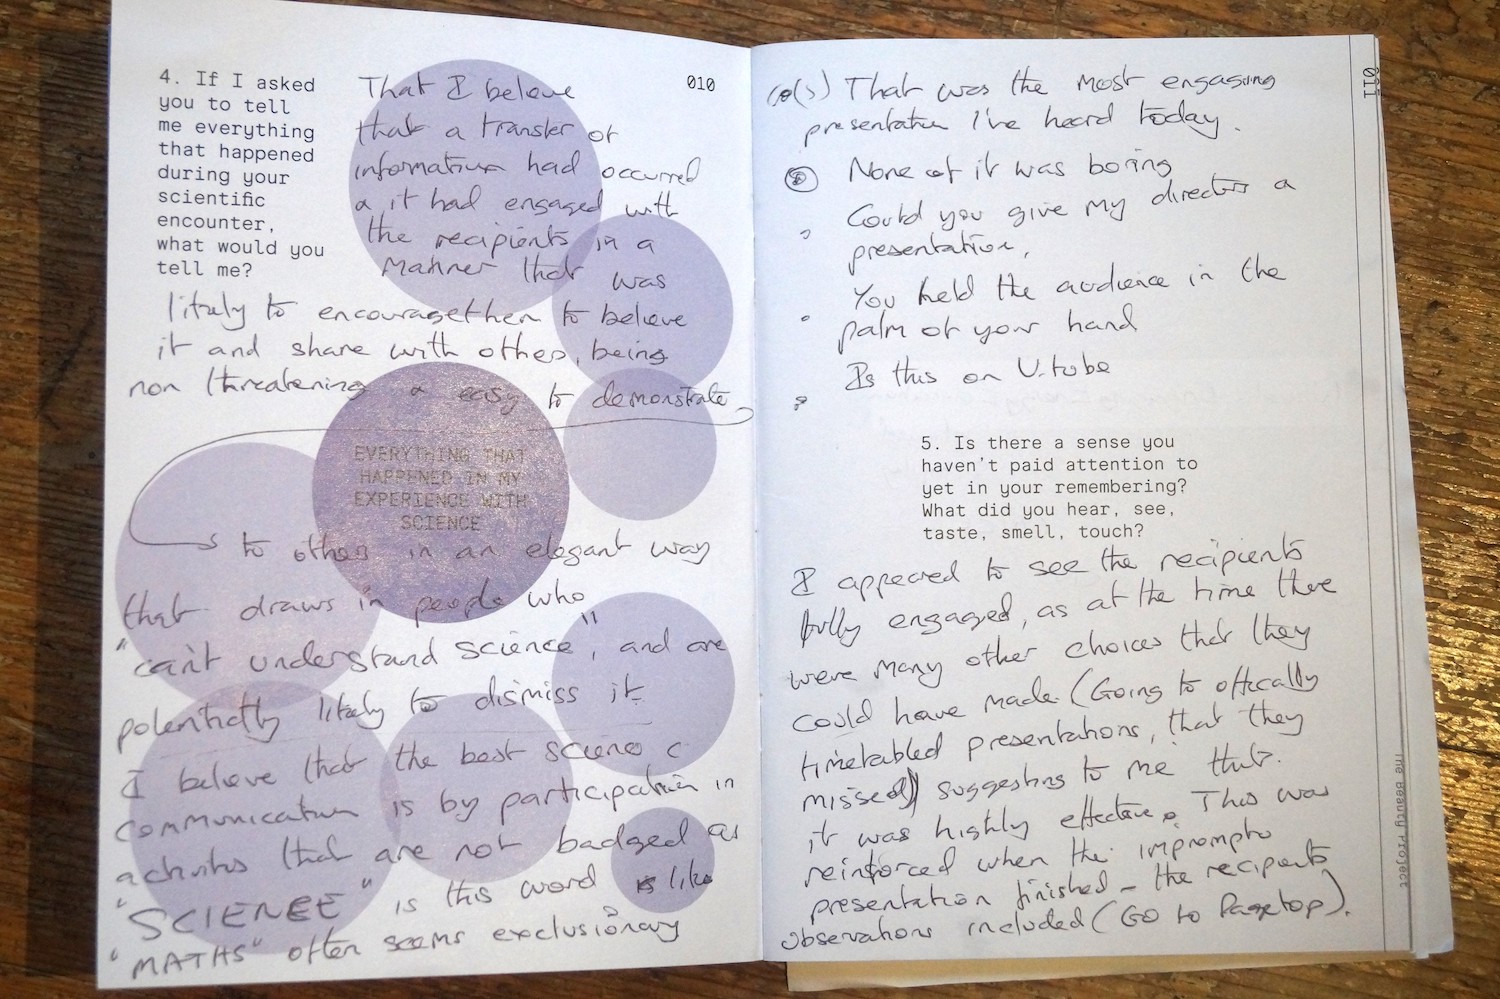 4. If I asked
you to tell
me everything
that happened
during your
scientific
encounter,
what would you
tell me?
010
That I believe
that a transfer of
information had occurred
a it had engaged with
the recipients in a
manner that was
likely to encourage them to believe
it and share with others, being
non threatening a easy to demonstrate
EVERYTHING THAT
HAPPENED IN MY
EXPERIENCE WITH
SCIENCE
to others in an elegant way
that draws in people who
"can't understand science", and are
potentially likely to dismiss it
I believe that the best science
communication is by participation in
activites that are not badged as
"SCIENCE" is this word like
"MATHS" often seems exclusionary
011
That was the most engaging
presentation I've heard today.
None of it was boring
Could you give my directors a
presentation,
You held the audience in the
palm of your hand
Is this on U.tube
5. Is there a sense you
haven't paid attention to
yet in your remembering?
What did you hear, see,
taste, smell, touch?
I appeared to see the recipients
fully engaged, as at the time there
were many other choices that they
could have made. (Going to offically
timetabled presentations, that they
missed) suggesting to me that.
it was highly effective. This was
reinforced when the impromptu
presentation finished - the recipients
observations included (Go to Page top).
The Beauty Project